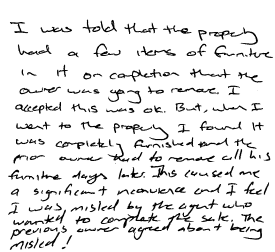 I was told that the property
had a few items of furniture
in it on copletion that the
owner was going to remove. I
accepted this was ok. But, when I
went to the property I found it
was completely furnished and the
prior owner had to remove all his
furniture days later. This caused me
a significant inconvence and I feel
I was, misled by the agent who
wanted to complete the sale. The
previous owner agreed about being
misled!